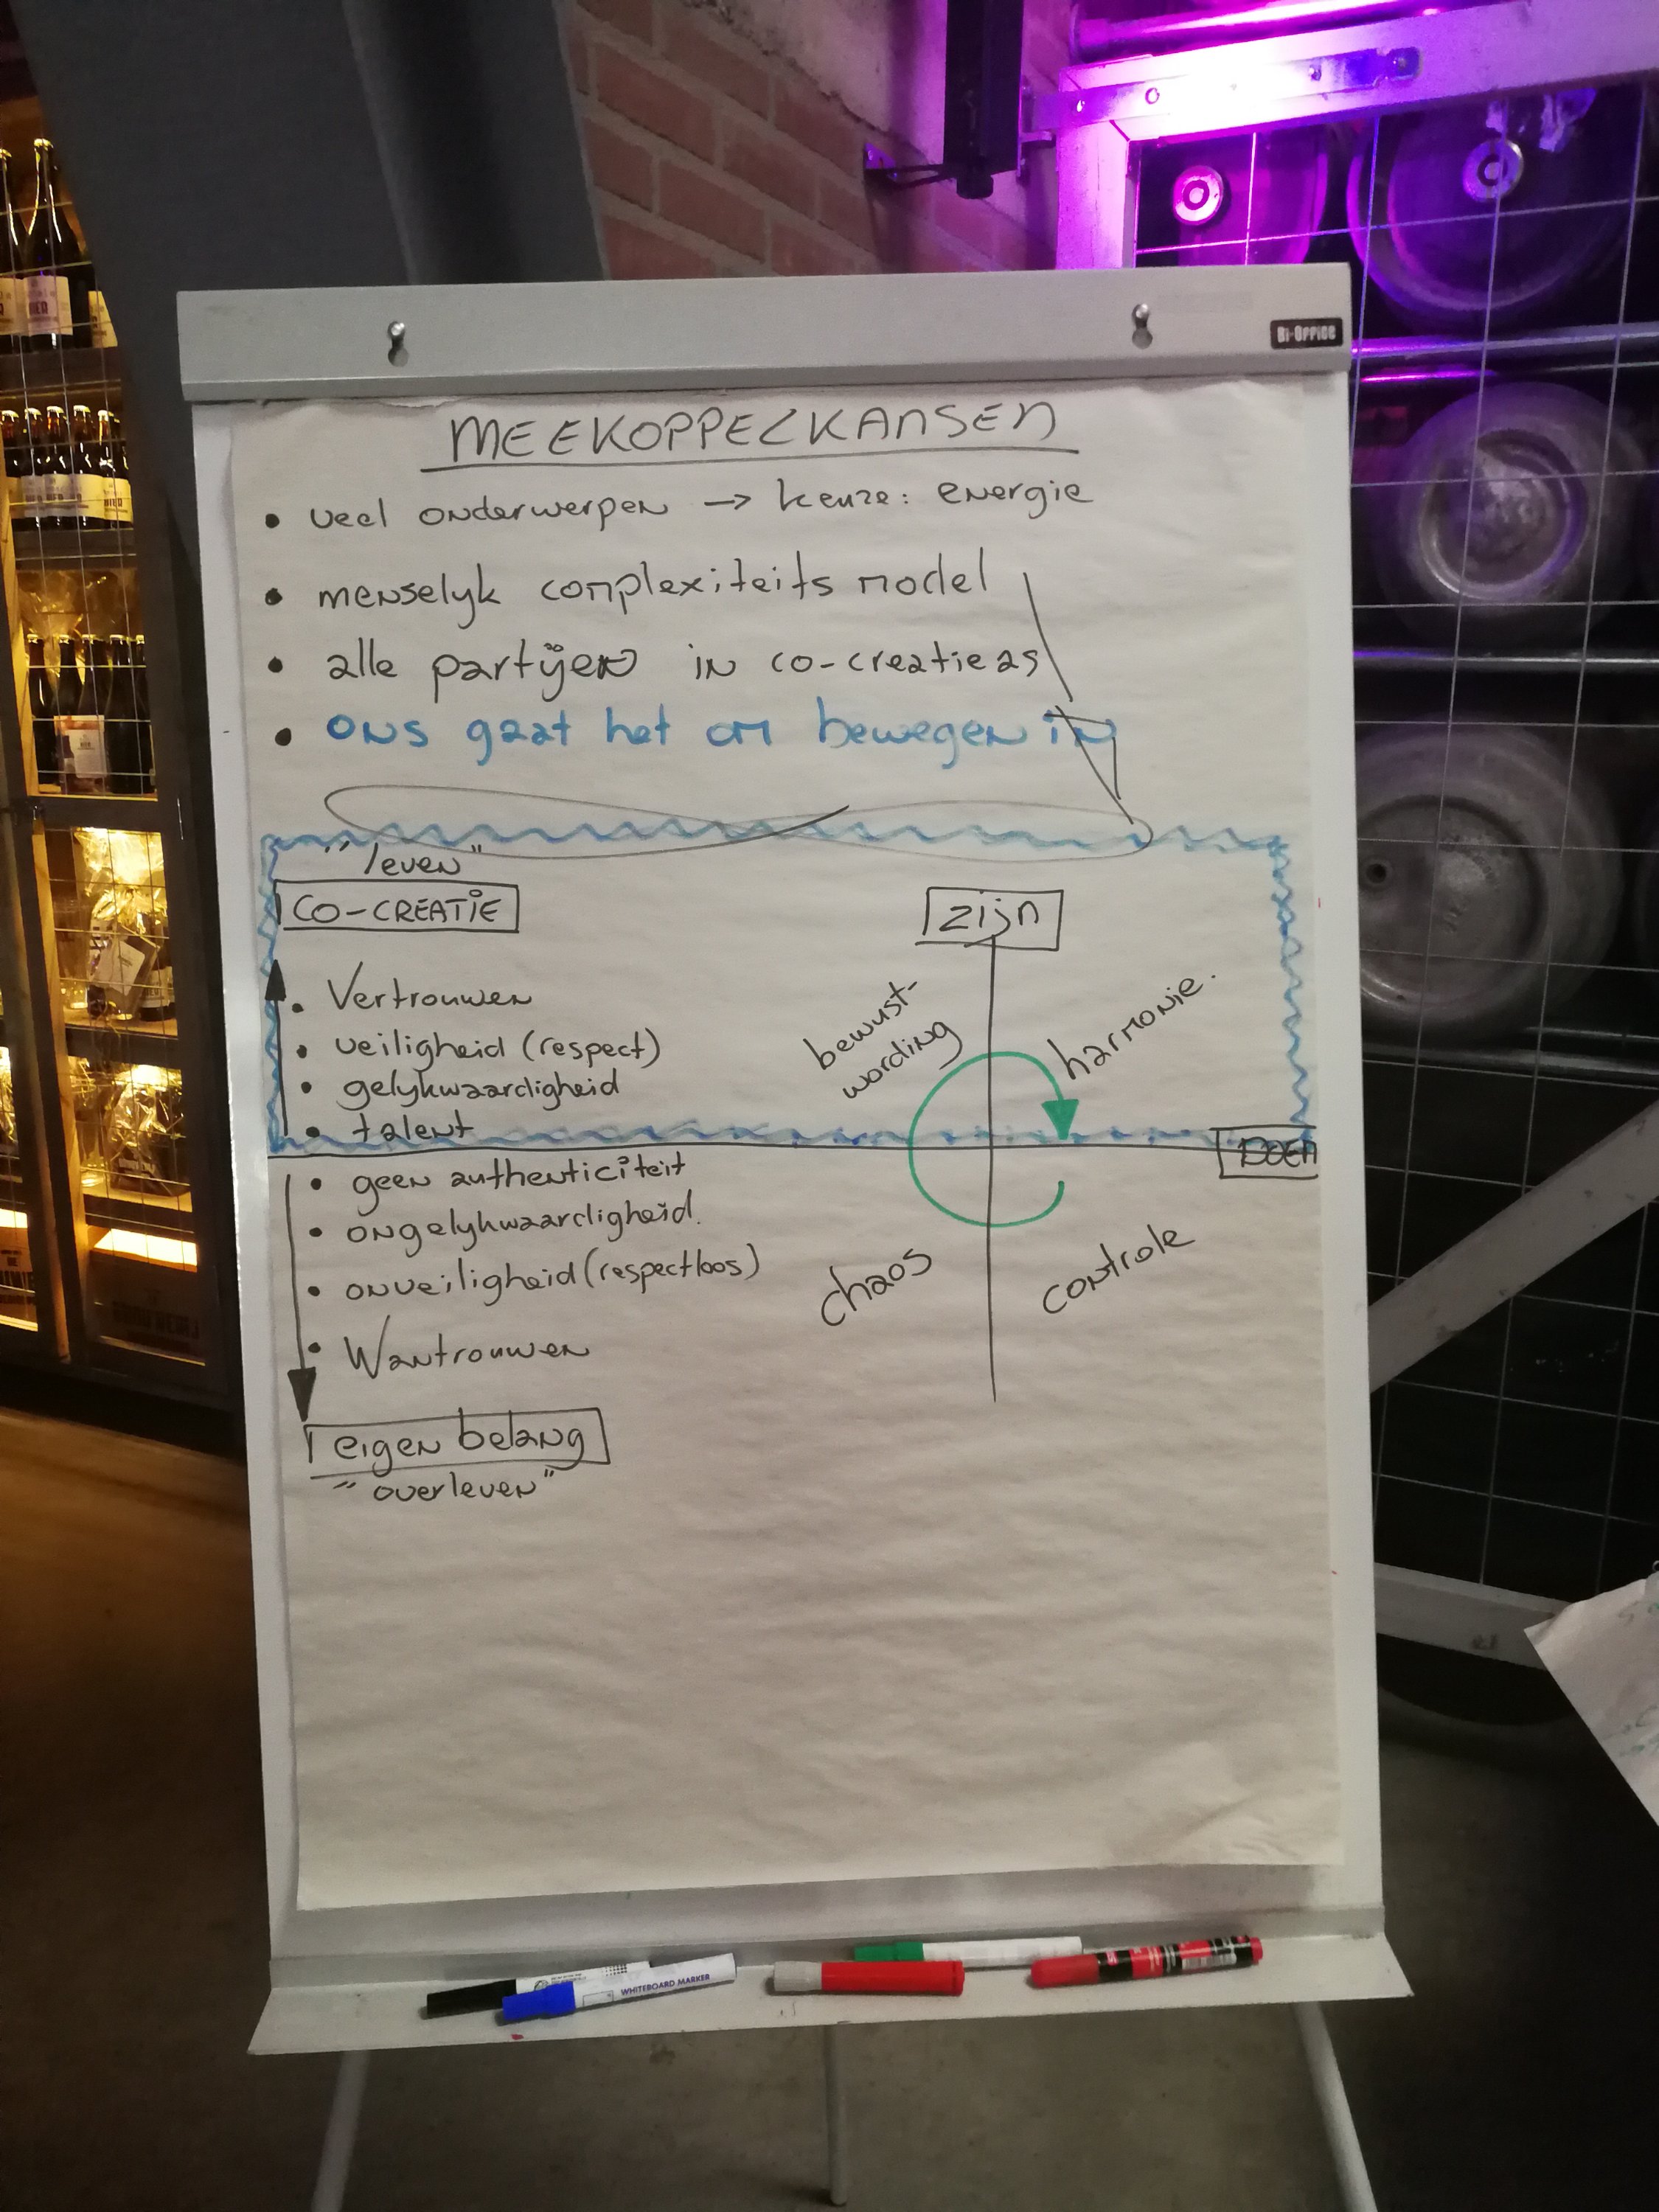 Bi-Office
MEEKOPPELKANSEN
• veel onderwerpen → keuze: energie
• menselyk complexiteits model
• alle partijen in co-creatie as
• ons gaat het om bewegen in
"leven"
CO-CREATIE
zijn
• Vertrouwen
• veiligheid (respect)
• gelykwaardigheid
• talent
bewust-
wording
harmonie.
DOEN
• geen authenticiteit
• ongelykwaardigheid.
• onveiligheid (respectloos)
• Wantrouwen
chaos
controle
eigen belang
"overleven"
WHITEBOARD MARKER